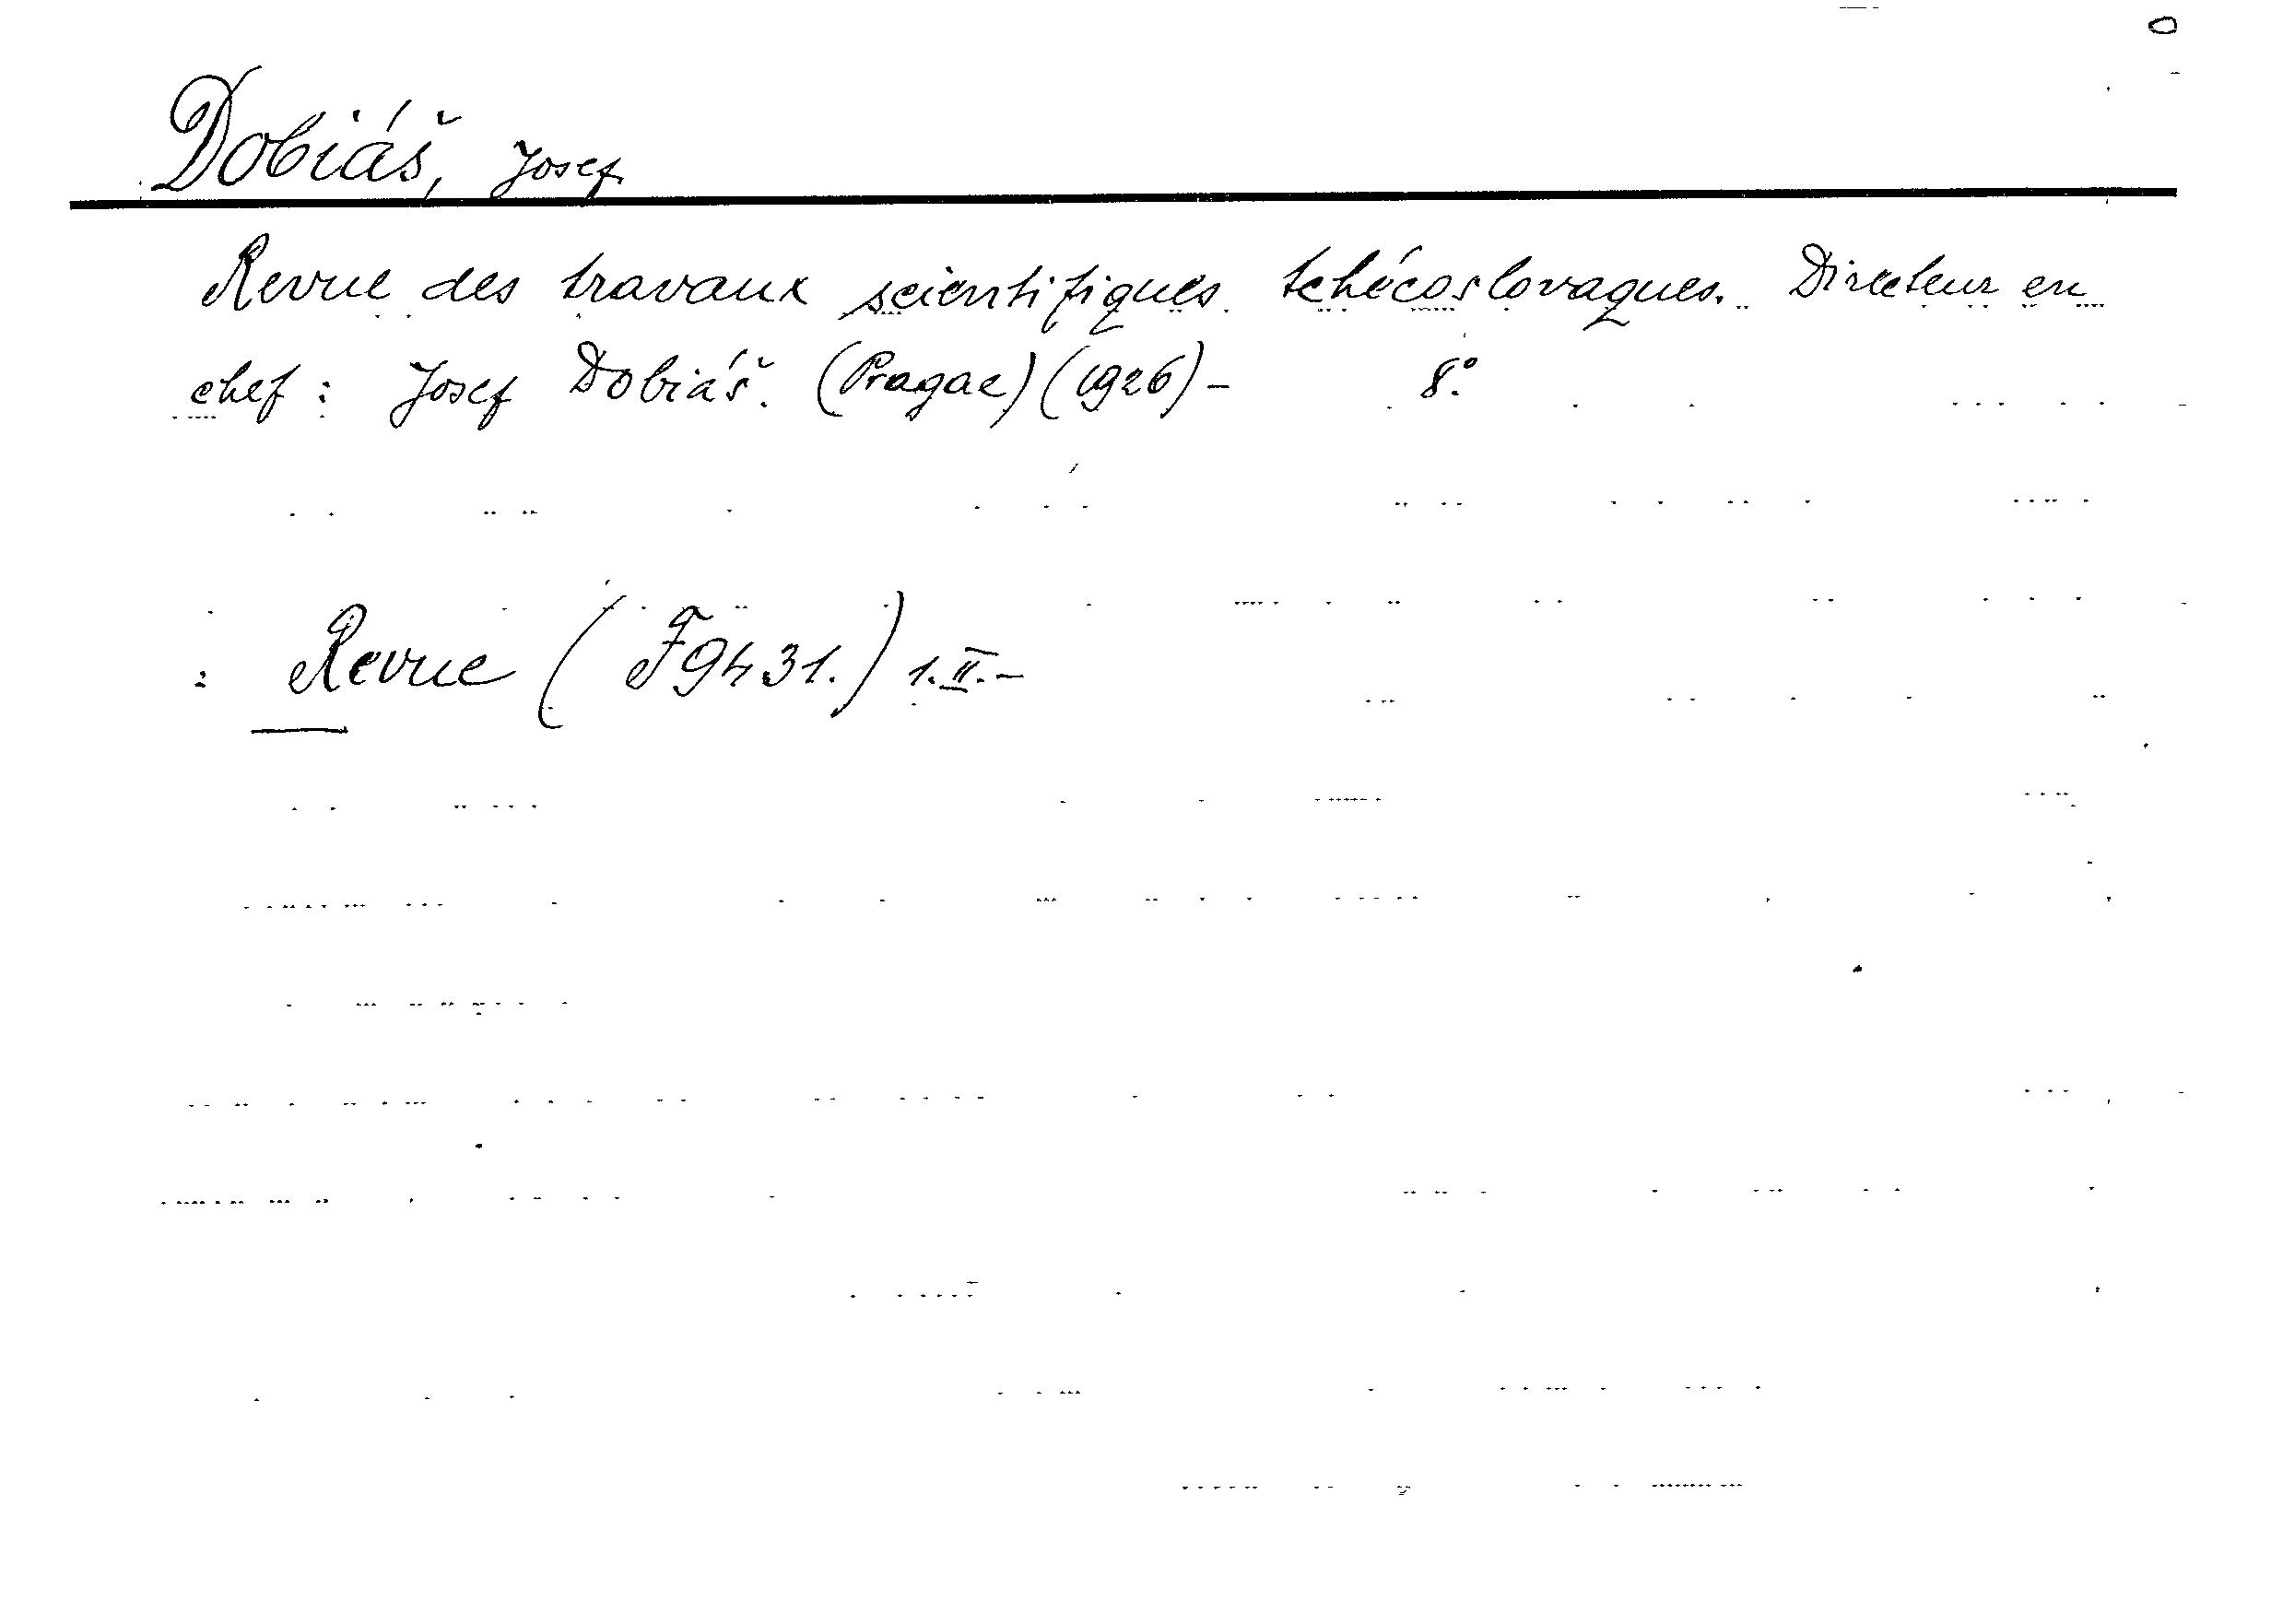 Dobiáš, Josef
Revue des travaux scientifiques tchécoslovaques. Directeur en
chef: Josef Dobiáš. (Pragae) (1926)- 8°.
: Revue (F9431.) 1.II.-